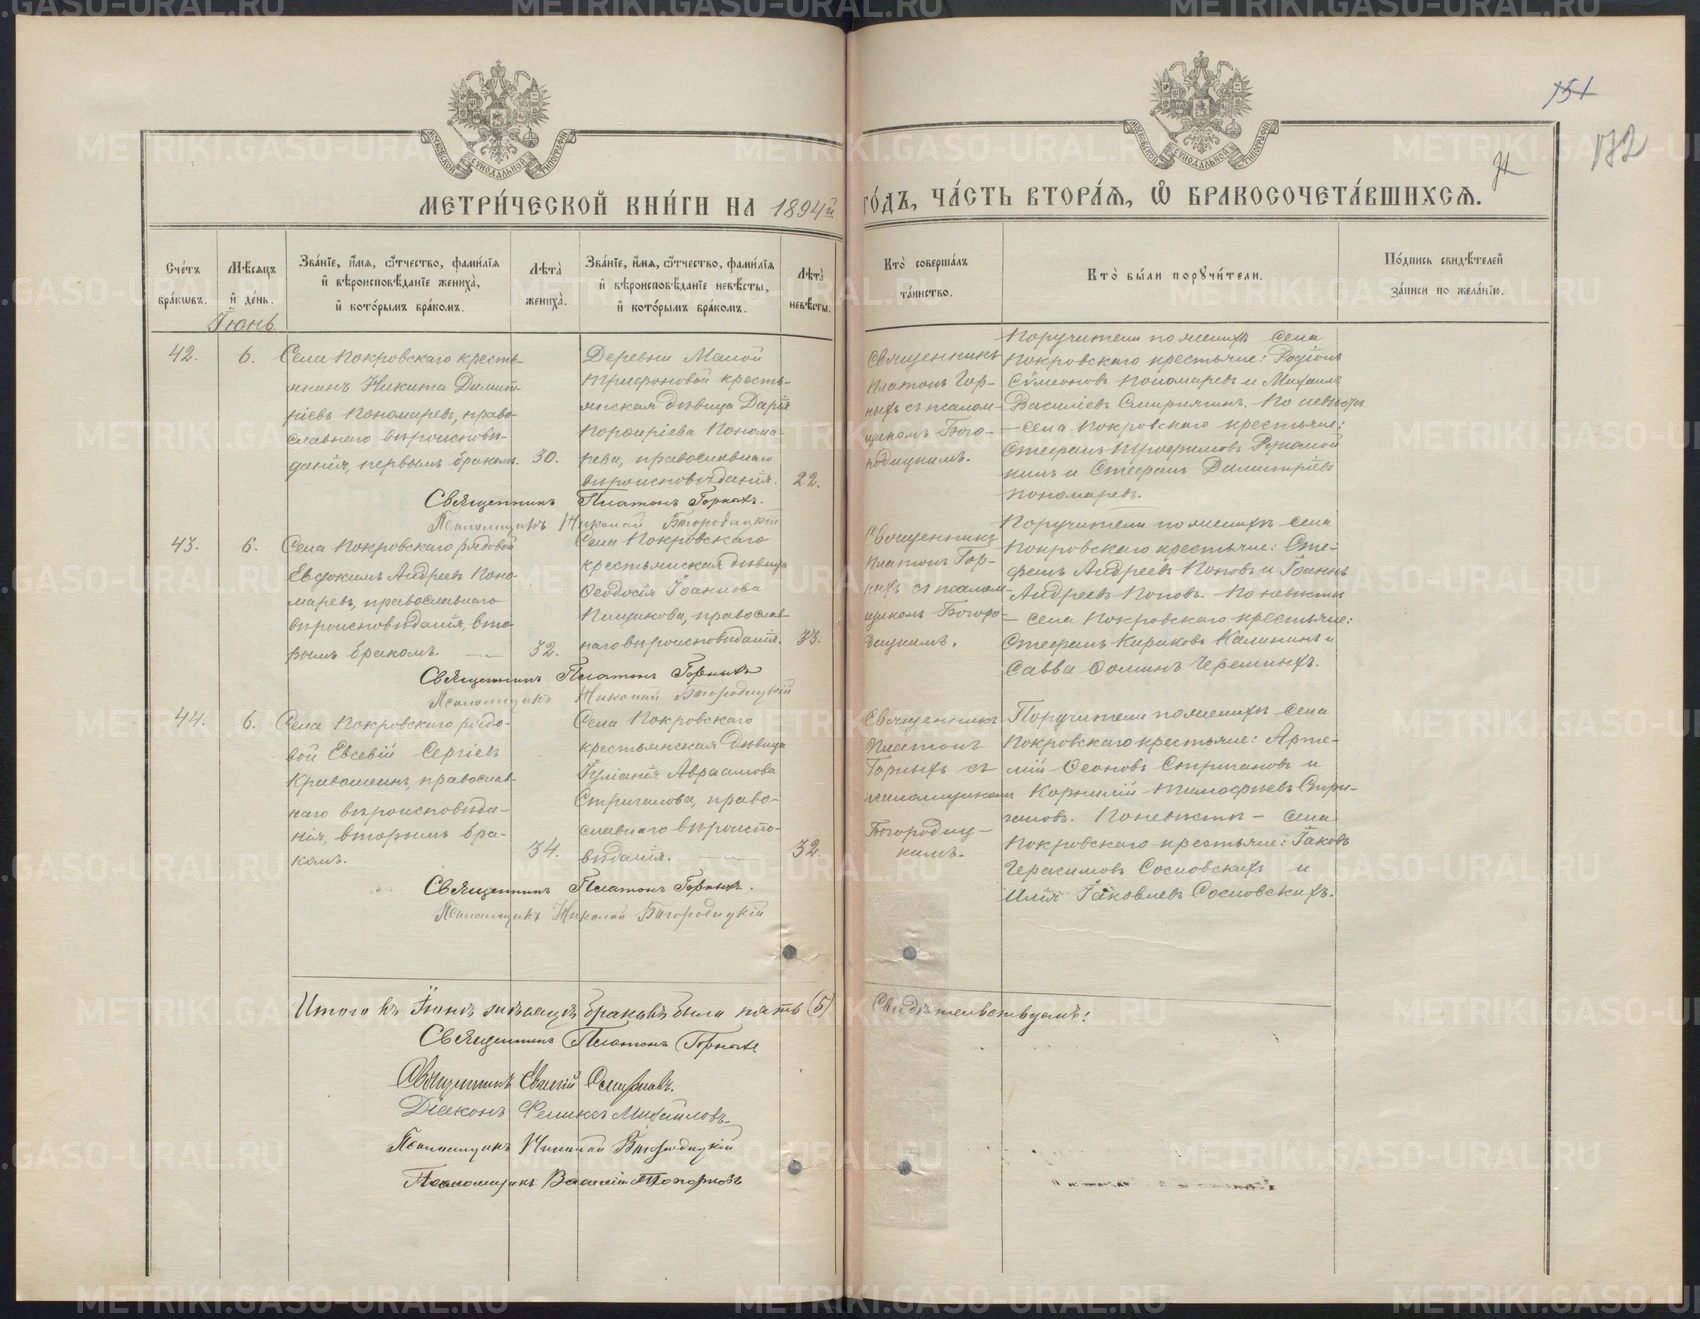 МЕТРИ́ЧЕСКОЙ КНИ́ГИ НА 1894й ГО́ДЪ, ЧА́СТЬ ВТОРА́Я, Ѡ БРАКОСОЧЕТА́ВШИХСЯ.
151
172
МОСКОВСКОЙ СѴНОДАЛЬНОЙ ТИПОГРАФІИ
МОСКОВСКОЙ СѴНОДАЛЬНОЙ ТИПОГРАФІИ
Сче́тъ бра́кѡвъ.
Мѣ́сяцъ и҆ де́нь.
Зва́нїе, и҆́мя, ѻ҆́тчество, фами́лїя
и҆ вѣроисповѣ́данїе жениха̀,
и҆ кото́рымъ бра́комъ.
Лѣта̀ жениха̀.
Зва́нїе, и҆́мя, ѻ҆́тчество, фами́лїя
и҆ вѣроисповѣ́данїе невѣ́сты,
и҆ кото́рымъ бра́комъ.
Лѣта̀ невѣ́сты.
Кто̀ соверша́лъ
та́инство.
Кто̀ бы́ли порꙋчи́тели.
По́дпись свидѣ́телей
за́писи по жела́нїю.
Іюнь
42.
6.
Села Покровскаго кресть-
янинъ Никита Димит-
ріевъ Пономаревъ, право-
славнаго вѣроисповѣ-
данія, первымъ бракомъ.
30.
Деревни Малой
Трифоновой кресть-
янская дѣвица Дарія
Порфиріева Понома-
рева, православнаго
вѣроисповѣданія.
22.
Священникъ
Платонъ Гор-
ныхъ съ псалом-
щикомъ Бого-
родицкимъ.
Поручители по женихѣ села
Покровскаго крестьяне: Родіонъ
Сѵмеоновъ Пономаревъ и Михаилъ
Василіевъ Смирнягинъ. По невѣстѣ
– села Покровскаго крестьяне:
Стефанъ Трофимовъ
и Стефанъ Димитріевъ
Пономаревъ.
Священникъ Платонъ Горныхъ.
Псаломщикъ Николай Богородицкій
43.
6.
Села Покровскаго рядовой
Евдокимъ Андреевъ Поно-
маревъ, православнаго
вѣроисповѣданія, вто-
рымъ бракомъ.
32.
Села Покровскаго
крестьянская дѣвица
Ѳеодосія Іоаннова
православ-
наго вѣроисповѣданія.
33.
Священникъ
Платонъ Гор-
ныхъ съ псалом-
щикомъ Богоро-
дицкимъ.
Поручители по женихѣ села
Покровскаго крестьяне: Сте-
фанъ Андреевъ Поповъ и Іоаннъ
Андреевъ Поповъ. По невѣстѣ
– села Покровскаго крестьяне:
Стефанъ Кириковъ Калининъ и
Савва Ѳоминъ Черемныхъ.
Священникъ Платонъ Горныхъ
Псаломщикъ Николай Богородицкій
44.
6.
Села Покровскаго рядо-
вой Евсевій Сергіевъ
Кривошеинъ, православ-
наго вѣроисповѣда-
нія, вторымъ бра-
комъ.
34.
Села Покровскаго
крестьянская дѣвица
Іуліанія Авраамова
Стриганова, право-
славнаго вѣроиспо-
вѣданія.
32.
Священникъ
Платонъ
Горныхъ съ
псаломщикомъ
Богородиц-
кимъ.
Поручители по женихѣ села
Покровскаго крестьяне: Арте-
мій Стригановъ и
Корнилій Тимофеевъ Стри-
гановъ. По невѣстѣ – села
Покровскаго крестьяне: Іаковъ
Герасимовъ Сосновскихъ и
Илія Іаковлевъ Сосновскихъ.
Священникъ Платонъ Горныхъ.
Псаломщикъ Николай Богородицкій
Итого въ Іюнѣ мѣсяцѣ браковъ было пять (5) Свидѣтельствуемъ:
Священникъ Платонъ Горныхъ
Священникъ
Діаконъ Феликсъ Михайловъ
Псаломщикъ Николай Богородицкій
Псаломщикъ Василій Топорковъ
METRIKI.GASO-URAL.RU